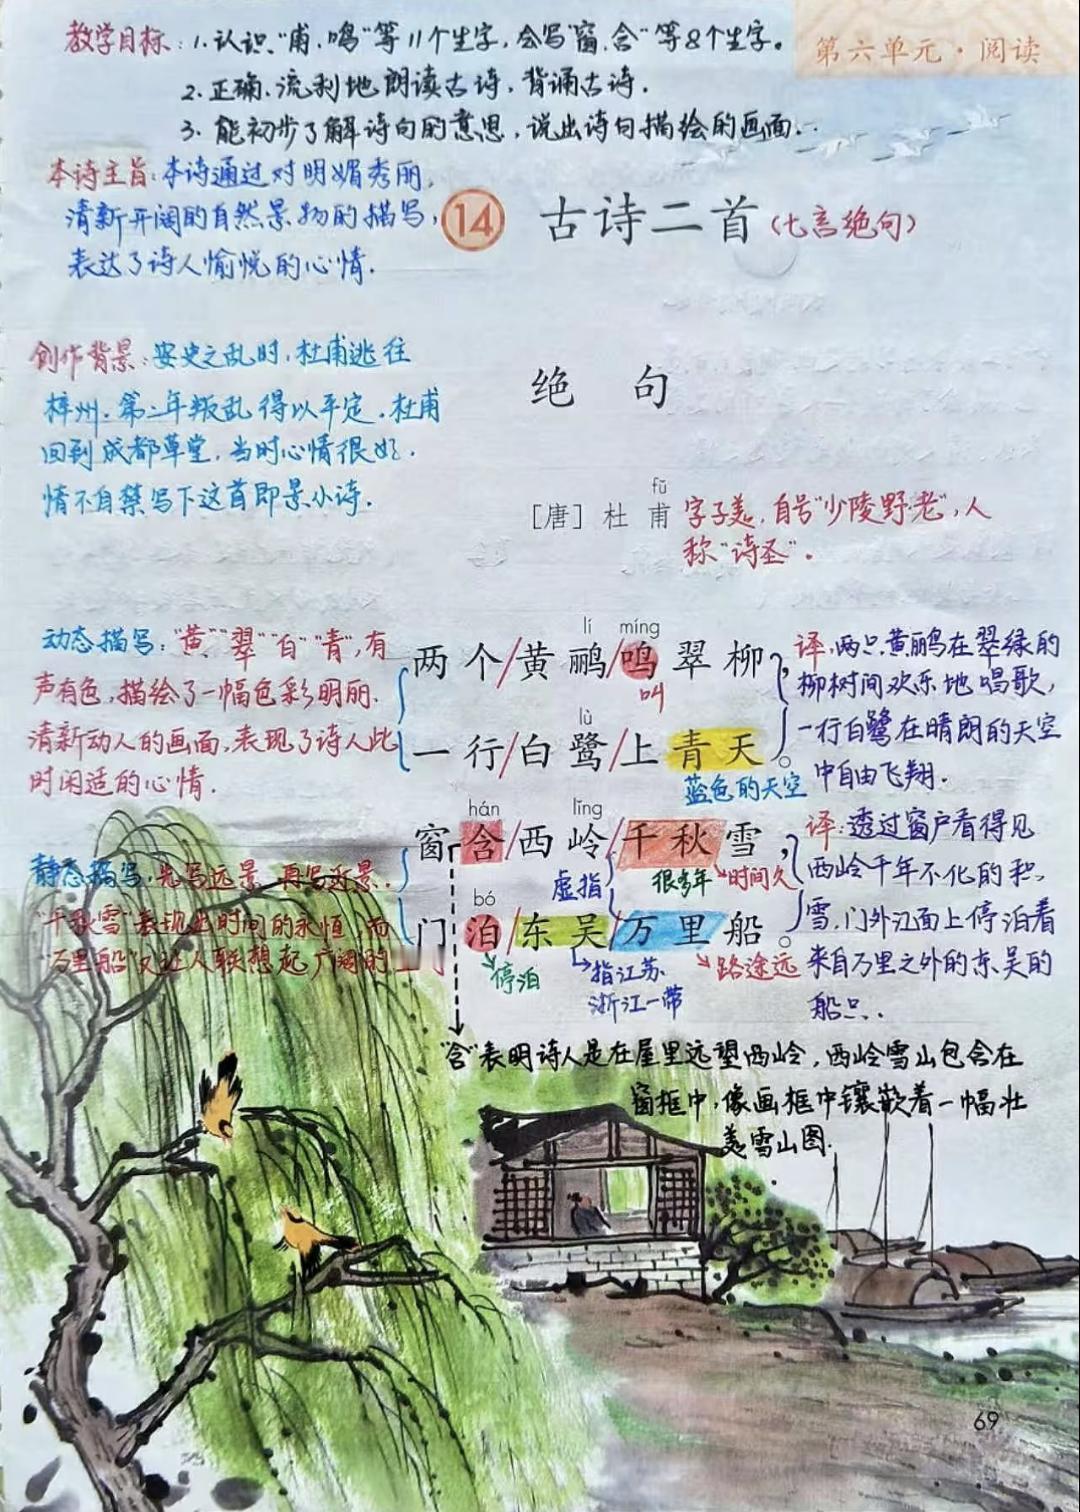 教学目标：1.认识"甫、鸣"等11个生字，会写"窗、含"等8个生字。
2.正确、流利地朗读古诗，背诵古诗.
3.能初步了解诗句的意思，说出诗句描绘的画面.
第六单元·阅读
本诗主旨：本诗通过对明媚秀丽、
清新开阔的自然景物的描写，
表达了诗人愉悦的心情.
14 古诗二首（七言绝句）
创作背景：安史之乱时，杜甫逃往
梓州.第二年叛乱得以平定.杜甫
回到成都草堂，当时心情很好.
情不自禁写下这首即景小诗.
绝句
fǔ
［唐］杜甫 字子美，自号"少陵野老"，人
称"诗圣"。
动态描写："黄""翠""白""青"，有
声有色，描绘了一幅色彩明丽.
清新动人的画面，表现了诗人此
时闲适的心情.
lí míng
两个/黄鹂/鸣翠柳，
叫
lù
一行/白鹭/上青天。
蓝色的天空
译，两只黄鹂在翠绿的
柳树间欢乐地唱歌，
一行白鹭在晴朗的天空
中自由飞翔.
静态描写，先写远景，再写近景.
"千秋雪"表现出时间的永恒，而
"万里船"又让人联想起广阔的
hán lǐng
窗含/西岭/千秋雪，
虚指 很多年 时间久
bó
门泊/东吴/万里船。
停泊 指江苏 路途远
浙江一带
译：透过窗户看得见
西岭千年不化的积
雪，门外江面上停泊着
来自万里之外的东吴的
船只.
"含"表明诗人是在屋里远望西岭，西岭雪山包含在
窗框中，像画框中镶嵌着一幅壮
美雪山图.
69